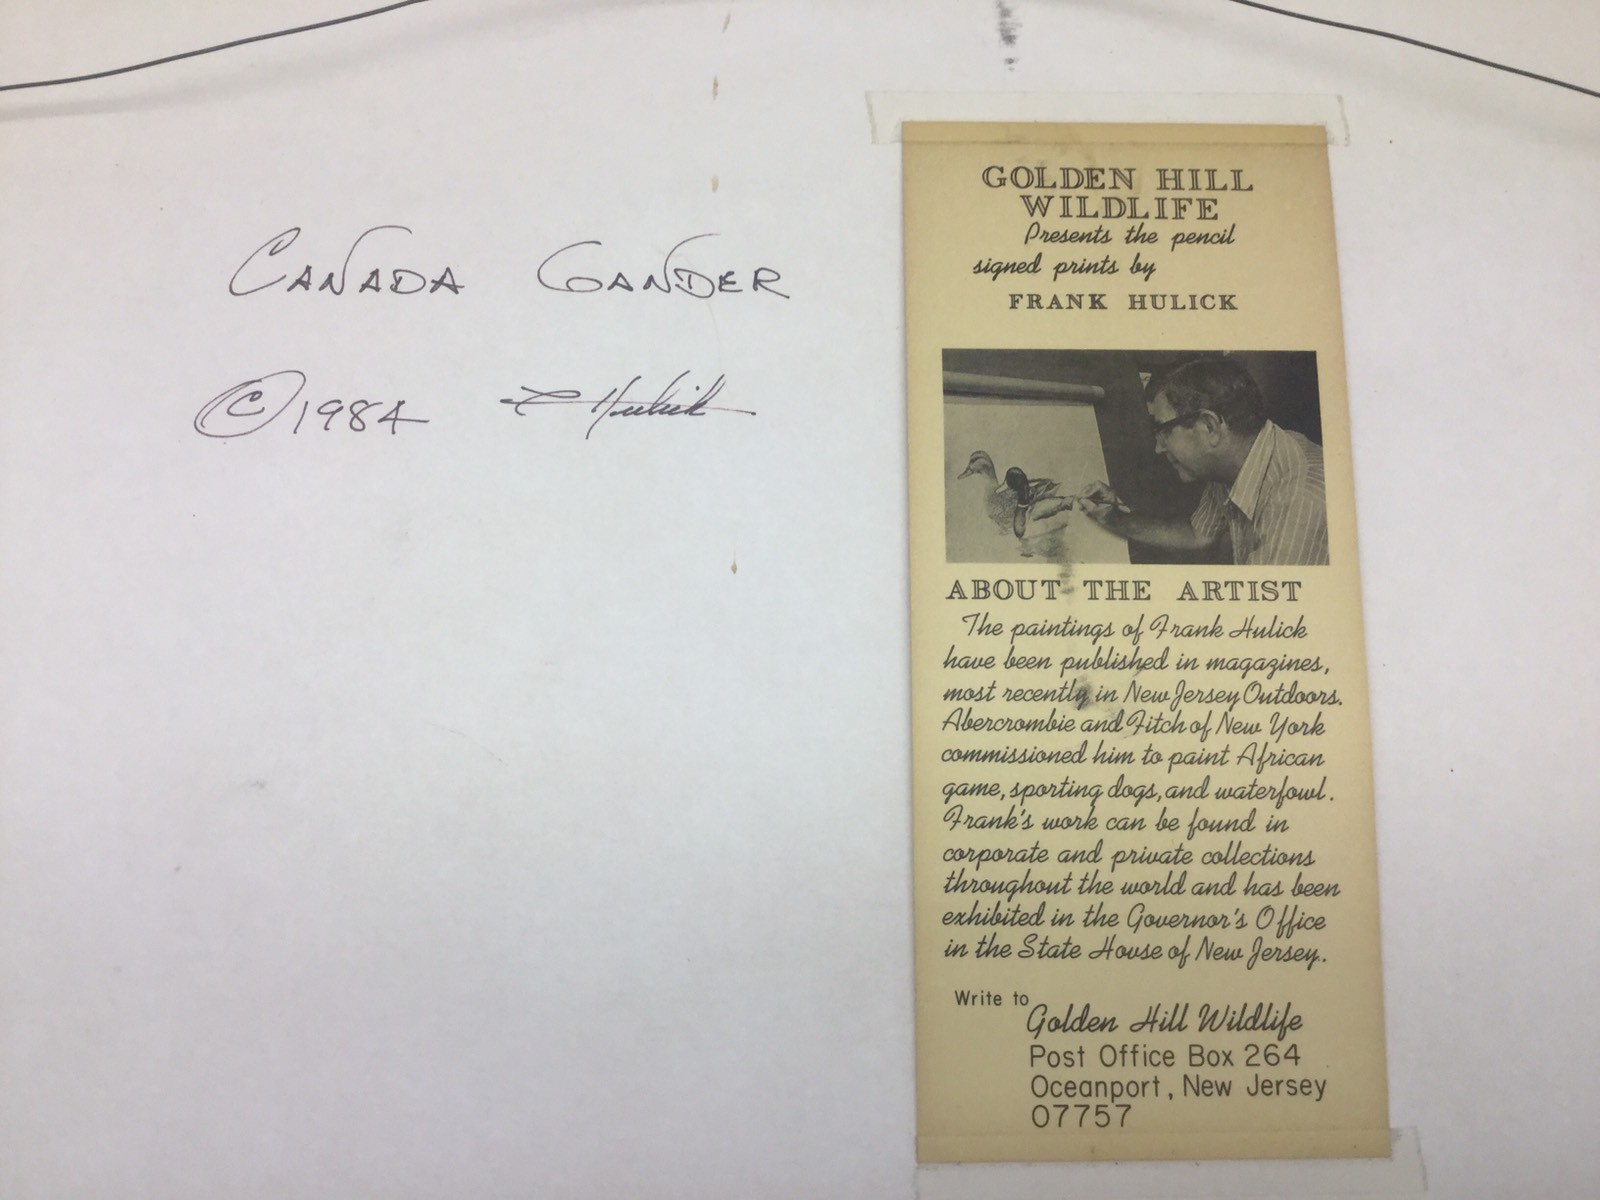 CANADA GANDER
© 1984 F Hulick
GOLDEN HILL
WILDLIFE
Presents the pencil
signed prints by
FRANK HULICK
ABOUT THE ARTIST
The paintings of Frank Hulick
have been published in magazines,
most recently in New Jersey Outdoors.
Abercrombie and Fitch of New York
commissioned him to paint African
game, sporting dogs, and waterfowl.
Frank's work can be found in
corporate and private collections
throughout the world and has been
exhibited in the Governor's Office
in the State House of New Jersey.
Write to
Golden Hill Wildlife
Post Office Box 264
Oceanport, New Jersey
07757